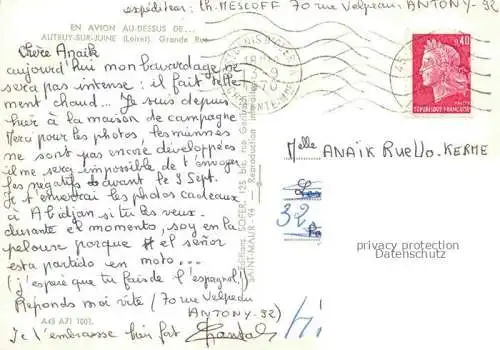 expéditeur : Ch. MESCOFF 70 rue Velpeau, ANTONY-92
EN AVION AU-DESSUS DE...
AUTRUY-SUR-JUINE (Loiret) Grande Rue
Chère Anaïk
aujourd'hui mon bavardage ne
sera pas intense : il fait telle
ment chaud... Je suis depuis
hier à la maison de campagne
Merci pour les photos, les miennes
ne sont pas encore développées
il me sera impossible de t'envoyer
les negatifs avant le 9 Sept.
Je t'enverrai les photos cadeaux
à Abidjan si tu les veux.
durante el momento, soy en la
pelouse porque el señor
esta partido en moto...
(j'espère que tu fais de l'espagnol!)
Réponds moi vite (70 rue Velpeau
ANTONY-92)
Je t'embrasse bien fort Chantal
A45 A71 1001.
Editions SOFER, 125 bis, rue Garibaldi
SAINT-MAUR - 94 - Reproduction interdite
0.40
REPUBLIQUE FRANÇAISE
Melle ANAÏK RUELLO. KERME
32
privacy protection
Datenschutz